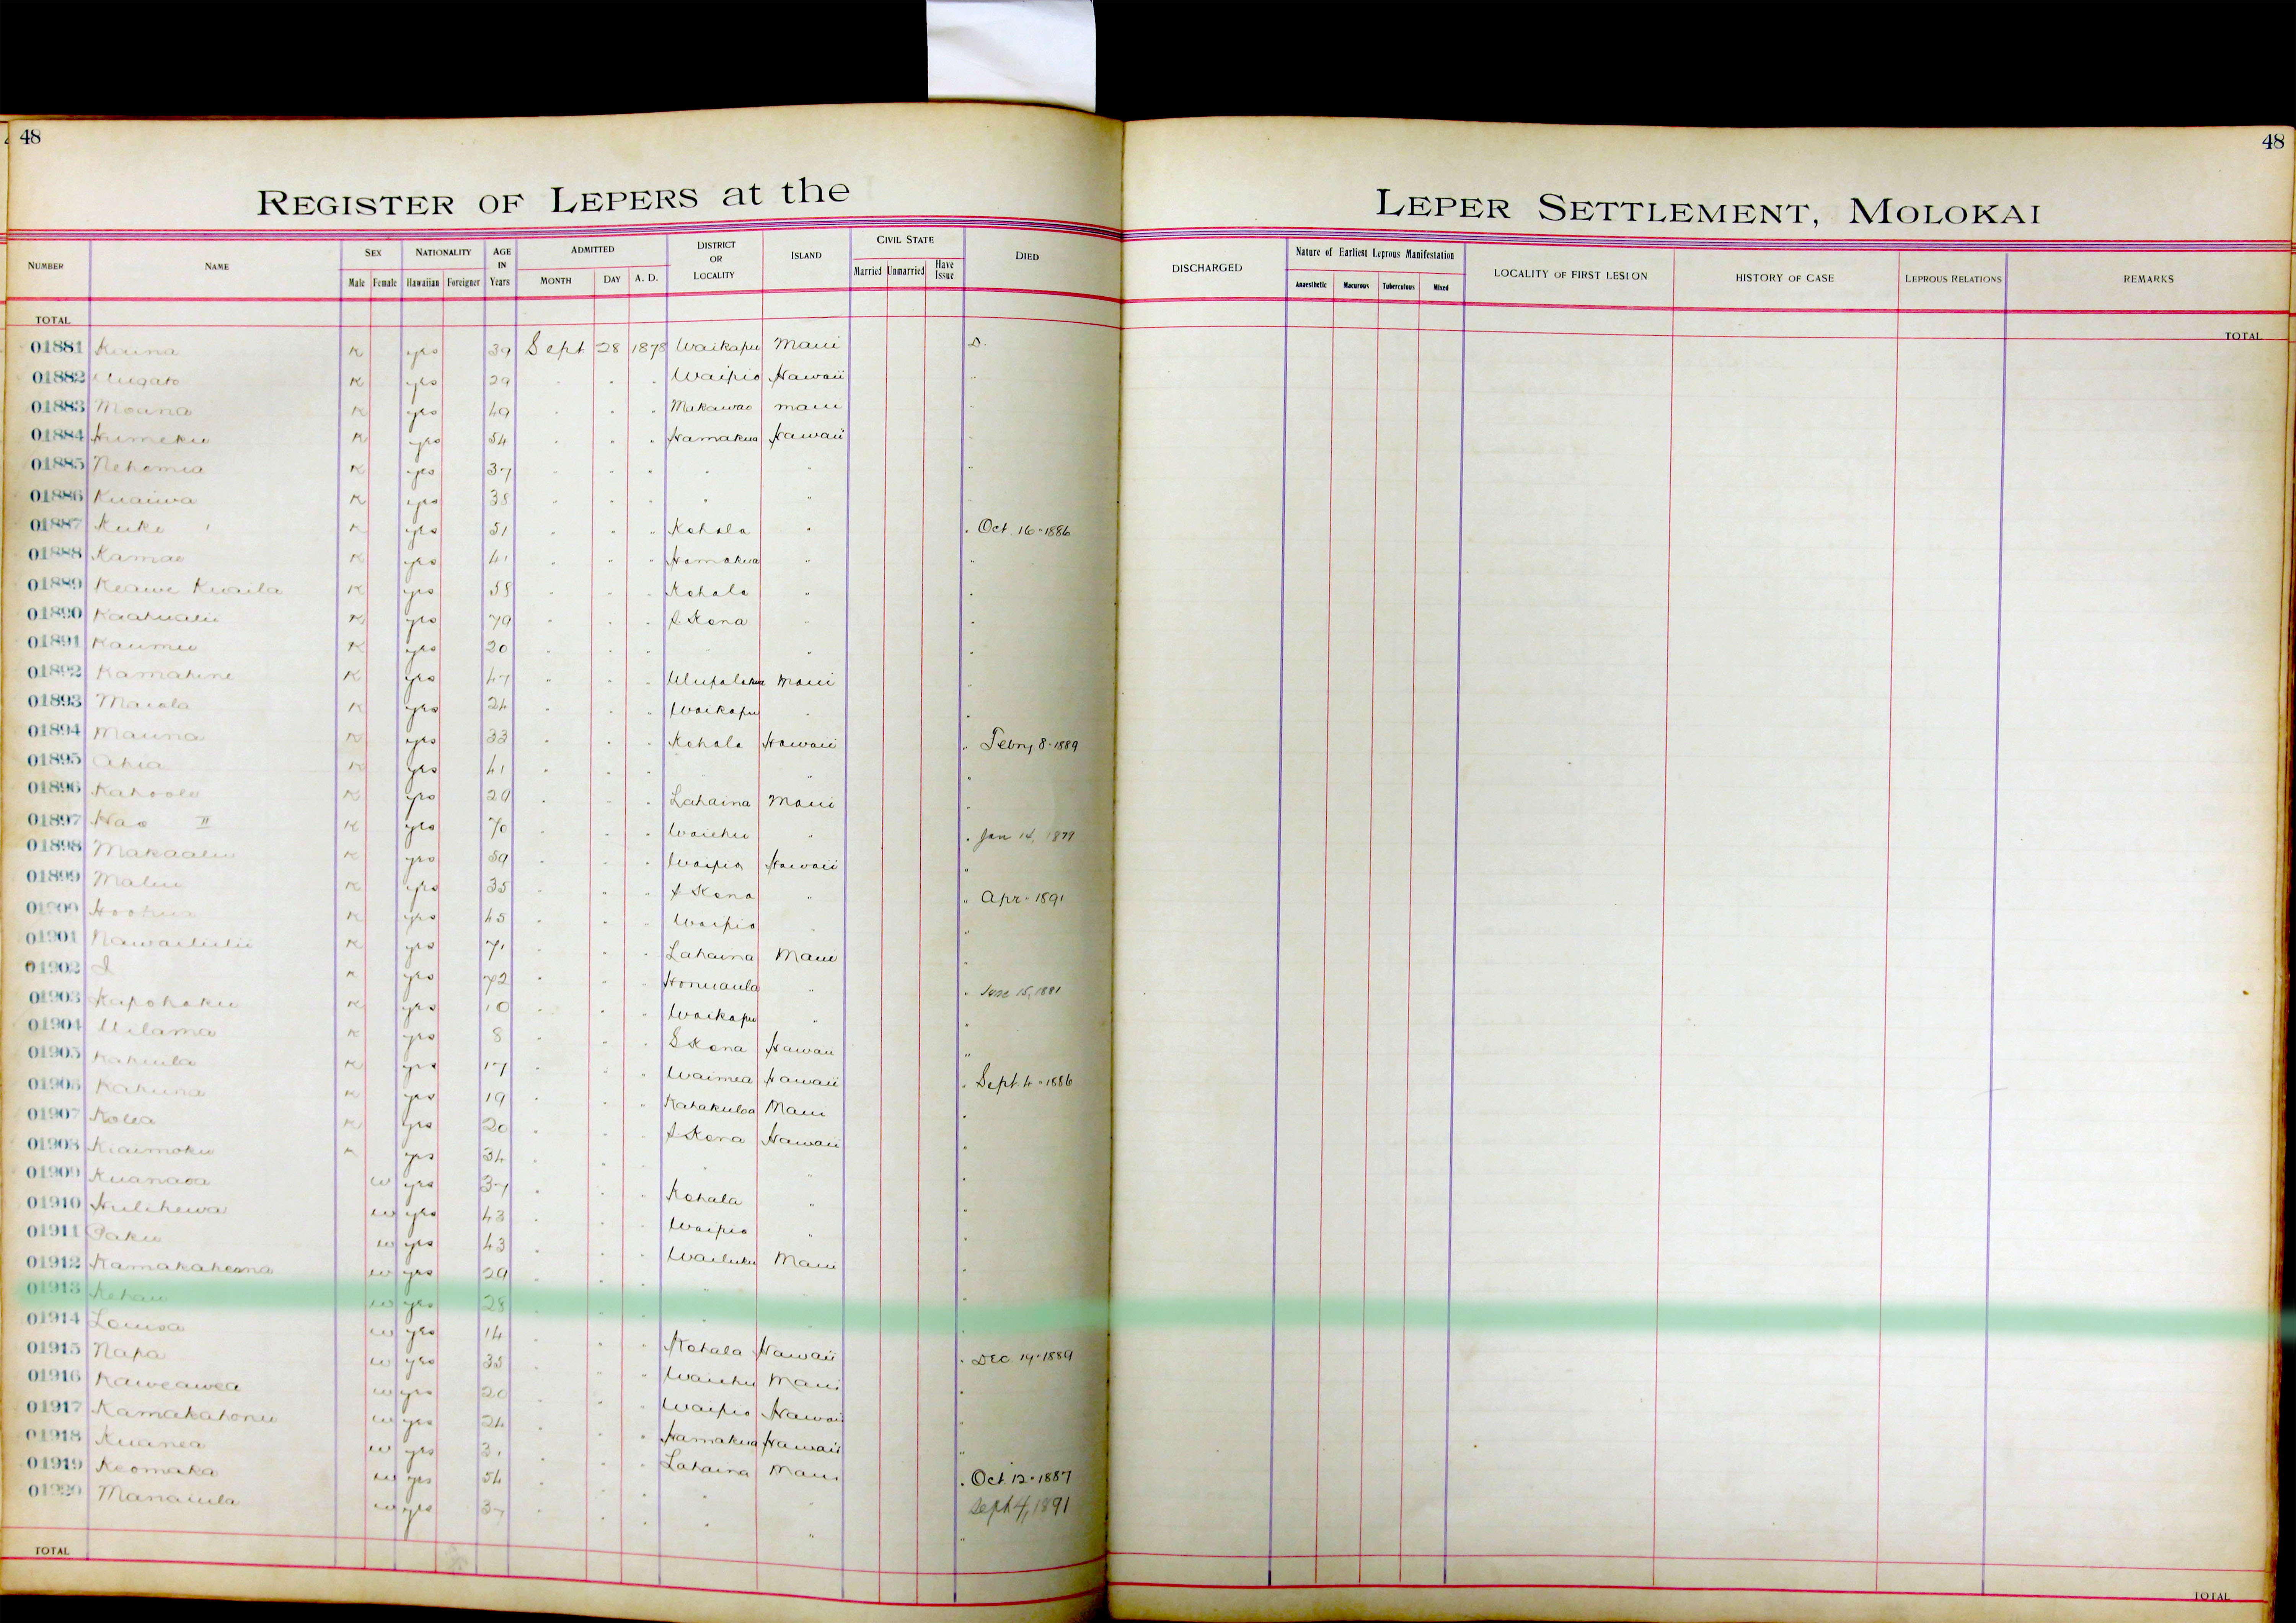 48
48
REGISTER OF LEPERS at the
LEPER SETTLEMENT, MOLOKAI
NUMBER NAME SEX NATIONALITY AGE IN Years ADMITTED DISTRICT OR LOCALITY ISLAND CIVIL STATE DIED
Male Female Hawaiian Foreigner MONTH DAY A. D. Married Unmarried Have Issue
DISCHARGED Nature of Earliest Leprous Manifestation LOCALITY OF FIRST LESION HISTORY OF CASE LEPROUS RELATIONS REMARKS
Anaesthetic Macurous Tuberculous Mixed
TOTAL
TOTAL
01881 K yes 39 Sept 28 1878 Waikapu Maui D.
01882 K yes 29 Waipio Hawaii
01883 Moana K yes 49 Makawao Maui
01884 Humeku K yes 54 Hamakua Hawaii
01885 Nehemia K yes 37 " "
01886 Kuaiwa K yes 38 " "
01887 Kuke K yes 51 Kohala " Oct. 16 - 1886
01888 Kamao K yes 41 Hamakua "
01889 Keawe K yes 58 Kohala "
01890 K yes 79 Kona "
01891 Kaumu K yes 20 "
01892 Kamahine K yes 47 Ulupalakua Maui
01893 Maiola K yes 24 Waikapu "
01894 Mauna K yes 33 Kohala Hawaii Febry 8 - 1889
01895 Ahia K yes 41 "
01896 Kahoole K yes 29 Lahaina Maui
01897 Hao II K yes 70 Waiehu " Jan 14, 1879
01898 Makaalu K yes 59 Waipio Hawaii
01899 Malu K yes 35 Kona " Apr - 1891
01900 K yes 45 Waipio
01901 Nawailiilii K yes 71 Lahaina Maui
01902 I K yes 72 Honuaula " June 15, 1881
01903 Kapohaku K yes 10 Waikapu "
01904 Uilama K yes 8 S Kona Hawaii
01905 Kahiula K yes 17 Waimea Hawaii Sept. 4 - 1886
01906 Kahuna K yes 19 Kahakuloa Maui
01907 Kolea K yes 20 Kona Hawaii
01908 Kiaimoku K yes 34 "
01909 Kuanaoa w yes 37 Kohala "
01910 Hulihewa w yes 43 Waipio "
01911 Paku w yes 43 Wailuku Maui
01912 w yes 29
01913 Kehau w yes 28
01914 Louisa w yes 14 Kohala Hawaii Dec. 19 - 1889
01915 Napa w yes 35 Waiehu Maui
01916 Kaweawea w yes 20 Waipio Hawaii
01917 Kamakahonu w yes 24 Hamakua Hawaii
01918 Kuanea w yes 31 Lahaina Maui Oct 12 - 1887
01919 Keomaka w yes 54 " " Sept 4, 1891
01920 Manaiula w yes 37 " "
TOTAL
TOTAL